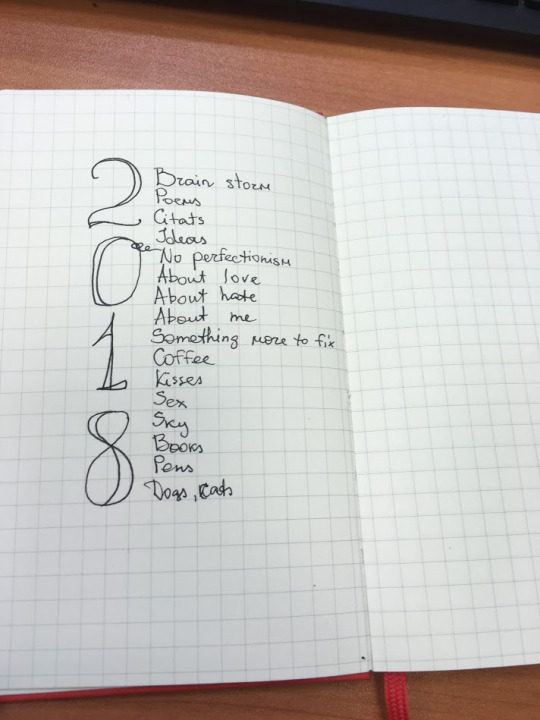 2018
Brain storm
Poems
Citats
Ideas
No perfectionism
About love
About hate
About me
Something more to fix
Coffee
Kisses
Sex
Sky
Books
Pens
Dogs, Cats